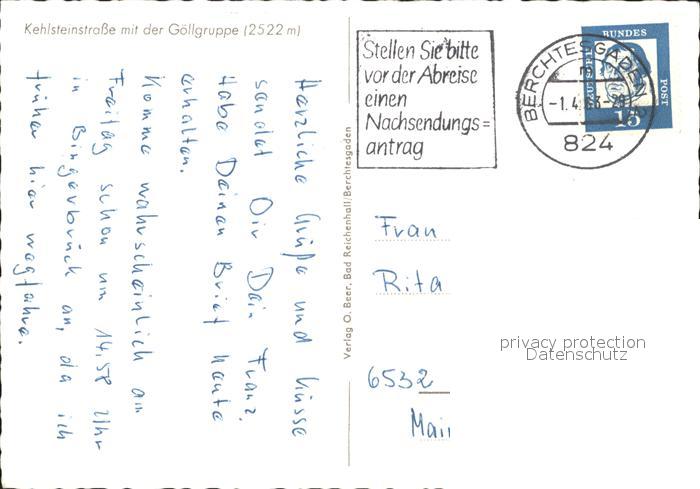 Kehlsteinstraße mit der Göllgruppe (2522 m)
Herzliche Grüße und Küsse
sendet Dir Dein Franz.
Habe Deinen Brief heute
erhalten.
Komme wahrscheinlich am
Freitag schon um 14.58 Uhr
in Bingerbrück an, da ich
früher hier wegfahre.
Verlag O. Beer, Bad Reichenhall/Berchtesgaden
Stellen Sie bitte
vor der Abreise
einen
Nachsendungs=
antrag
BERCHTESGADEN
-1.4.63-20
824
BUNDES
POST
15
Frau
Rita
6532
privacy protection
Datenschutz